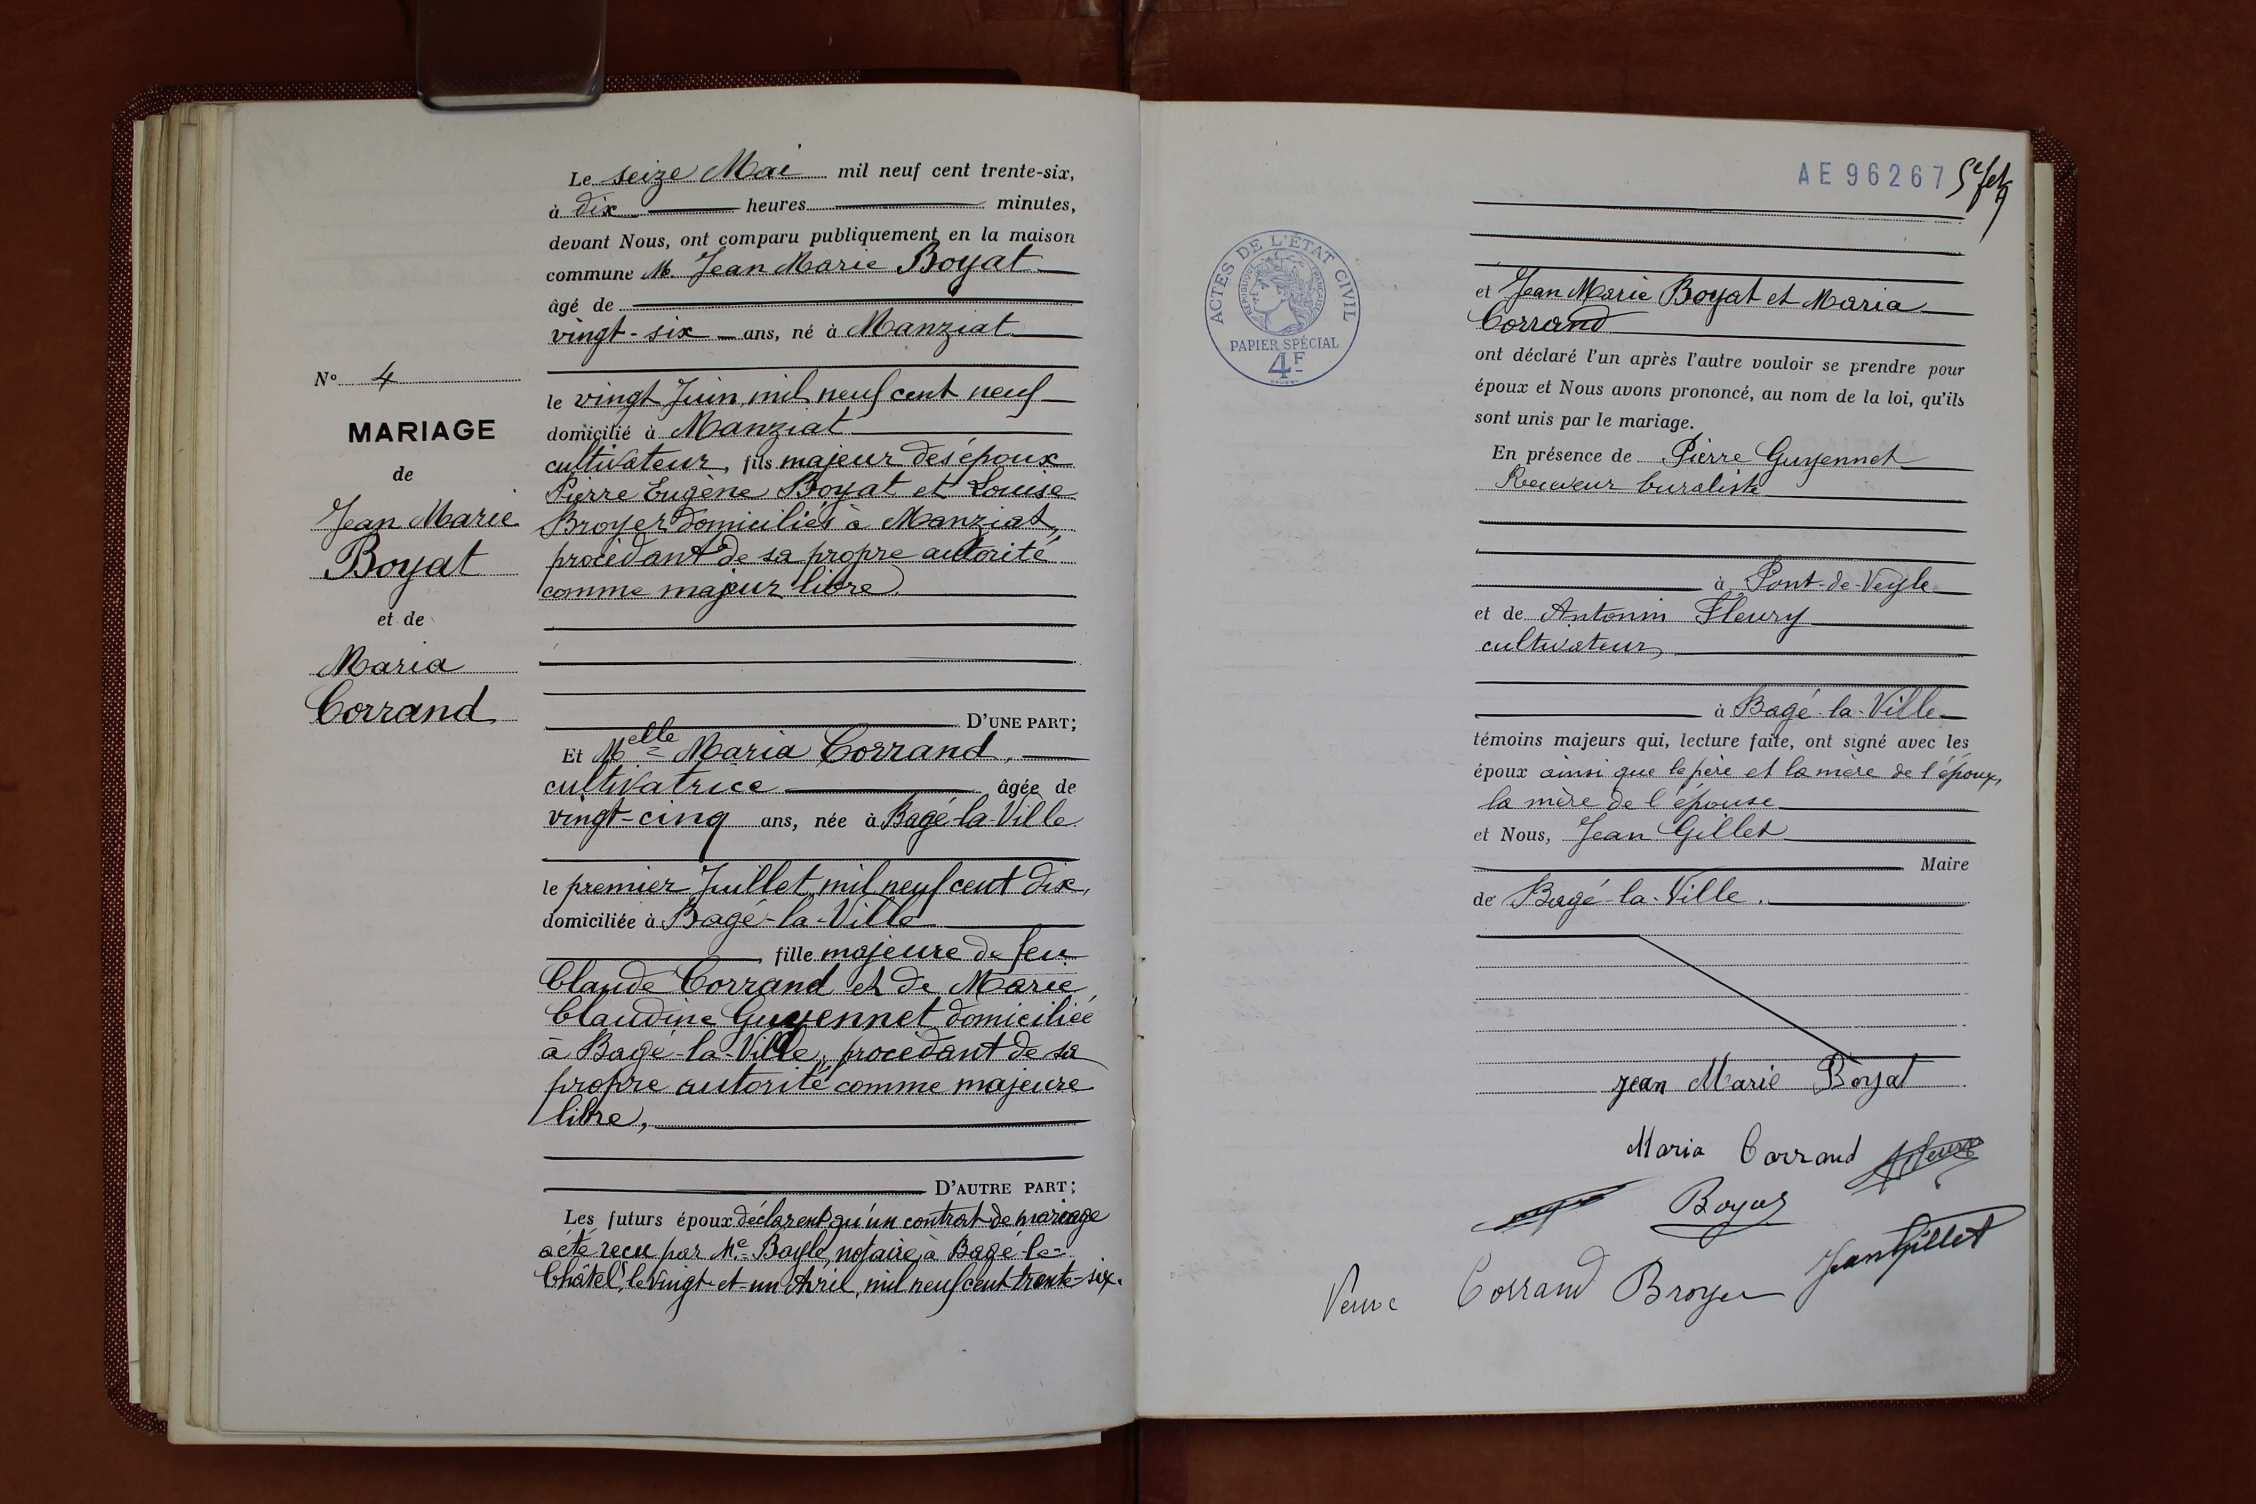 Le seize Mai mil neuf cent trente-six,
à dix heures minutes,
devant Nous, ont comparu publiquement en la maison
commune M. Jean Marie Boyat
âgé de
vingt-six ans, né à Manziat
le vingt Juin, mil neuf cent neuf
domicilié à Manziat
cultivateur, fils majeur des époux
Pierre Eugène Boyat et Louise
Broyer domiciliés à Manziat,
procédant de sa propre autorité
comme majeur libre.
D'UNE PART;
Et Melle Maria Corrand,
cultivatrice âgée de
vingt-cinq ans, née à Bagé-la-Ville
le premier Juillet, mil neuf cent dix,
domiciliée à Bagé-la-Ville
fille majeure de feu
Claude Corrand et de Marie
Claudine Guyennet domiciliée
à Bagé-la-Ville, procédant de sa
propre autorité comme majeure
libre,
D'AUTRE PART;
Les futurs époux déclarent qu'un contrat de mariage
a été reçu par Me Bayle, notaire, à Bagé-le-
Châtel, le vingt-et-un Avril, mil neuf cent trente-six.
No 4
MARIAGE
de
Jean Marie
Boyat
et de
Maria
Corrand
AE 96267
ACTES DE L'ÉTAT CIVIL
RÉPUBLIQUE FRANÇAISE
PAPIER SPÉCIAL
4F
et Jean Marie Boyat et Maria
Corrand
ont déclaré l'un après l'autre vouloir se prendre pour
époux et Nous avons prononcé, au nom de la loi, qu'ils
sont unis par le mariage.
En présence de Pierre Guyennet
Receveur buraliste
à Pont-de-Veyle
et de Antonin Fleury
cultivateur,
à Bagé-la-Ville
témoins majeurs qui, lecture faite, ont signé avec les
époux ainsi que le père et la mère de l'époux,
la mère de l'épouse
et Nous, Jean Gillet
Maire
de Bagé-la-Ville.
jean Marie Boyat
Maria Corrand AFleury
Boyat
Jean Gillet
Veuve Corrand Broyer